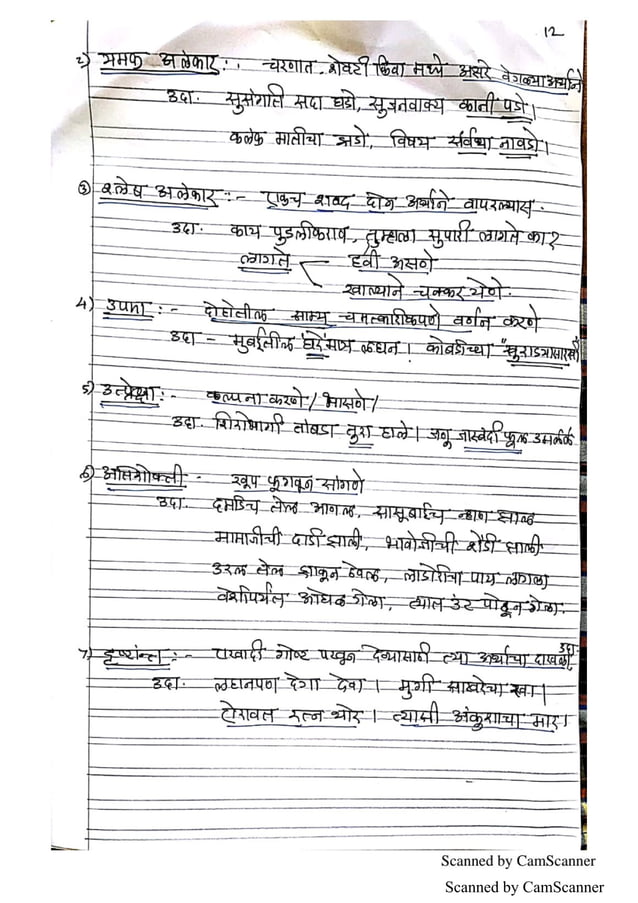 12
२) यमक अलंकार :- चरणात, शेवटी किंवा मध्ये अक्षरे वेगळ्या अर्थाने
उदा. सुसंगति सदा घडो, सुजनवाक्य कानी पडो।
कलंक मतीचा झडो, विषय सर्वथा नावडो।
३) श्लेष अलंकार :- एकच शब्द दोन अर्थाने वापरल्यास.
उदा. काय पुडलीकराव, तुम्हाला सुपारी लागते का?
लागते हवी असणे
खाल्याने चक्कर येणे.
4) उपमा :- दोहोतील साम्य चमत्कारिकपणे वर्णन करणे
उदा - मुबईतील 'घरे' मात्र लहान। कोबडीच्या "खुराड्यासारखी"
5) उत्प्रेक्षा :- कल्पना करणे / भासणे /
उदा. शिरोभागी तांबडा तुरा हाले। जणू जास्वंदी फूल उमलले
6) अतिशोक्ती - खूप फुगवून सांगणे
उदा. दमडिच तेल आणल, सासूबाईच न्हाण झाल
मामाजीची दाढी झाली, भावोजीची शेंडी झाली
उरल तेल झाकून ठेवल, लांडोरीचा पाय लागला
वेशीपर्यंत ओघळ गेला, त्यात उंट पोहून गेला.
7) दृष्टांन्त :- एखादी गोष्ट पटवून देण्यासाठी त्या अर्थाचा दाखला
उदा. लहानपण देगा देवा। मुगी साखरेचा रवा।
ऐरावत रत्न थोर। त्यासी अंकुशाचा मार।
Scanned by CamScanner
Scanned by CamScanner